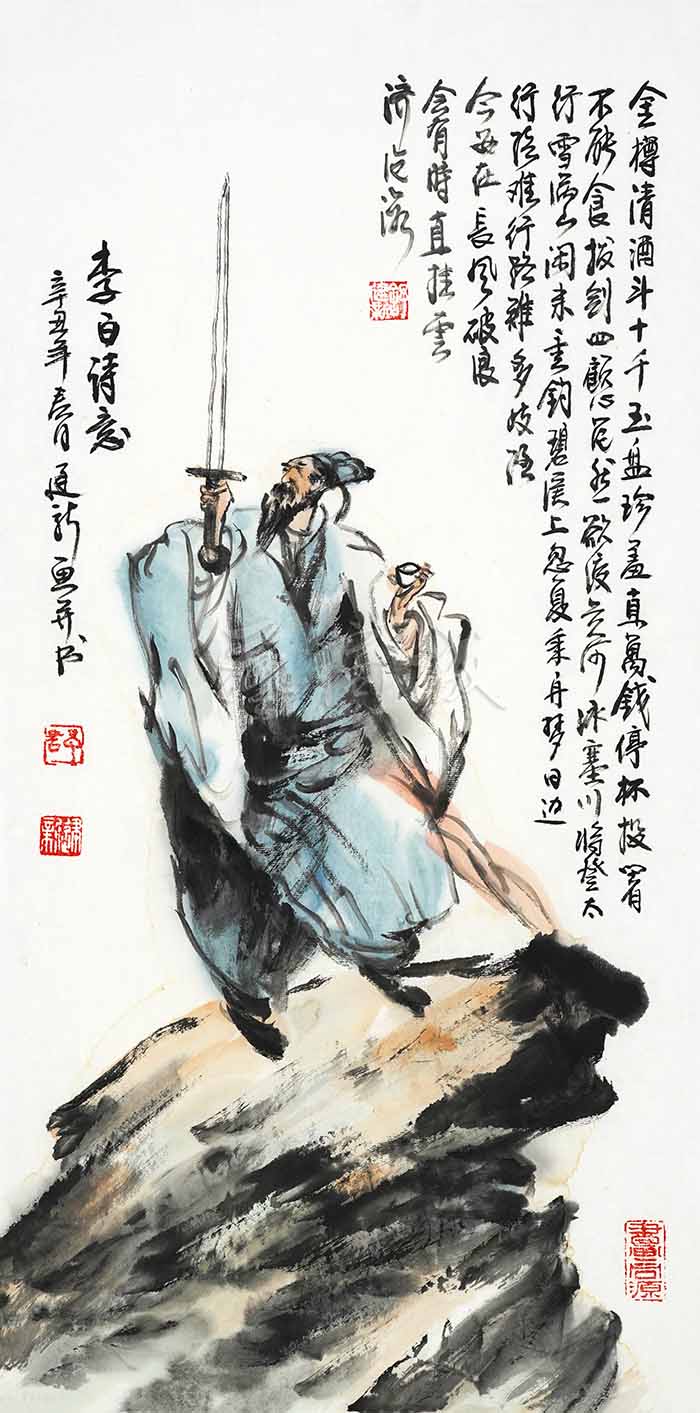 金樽清酒斗十千玉盘珍羞直萬錢停杯投箸
不能食拔剑四顾心茫然欲渡黄河冰塞川将登太
行雪满山闲来垂钓碧溪上忽复乘舟梦日边
行路难行路難多歧路
今安在長风破浪
会有時直挂雲
济沧海
李白詩意
辛丑年春月建新画并书